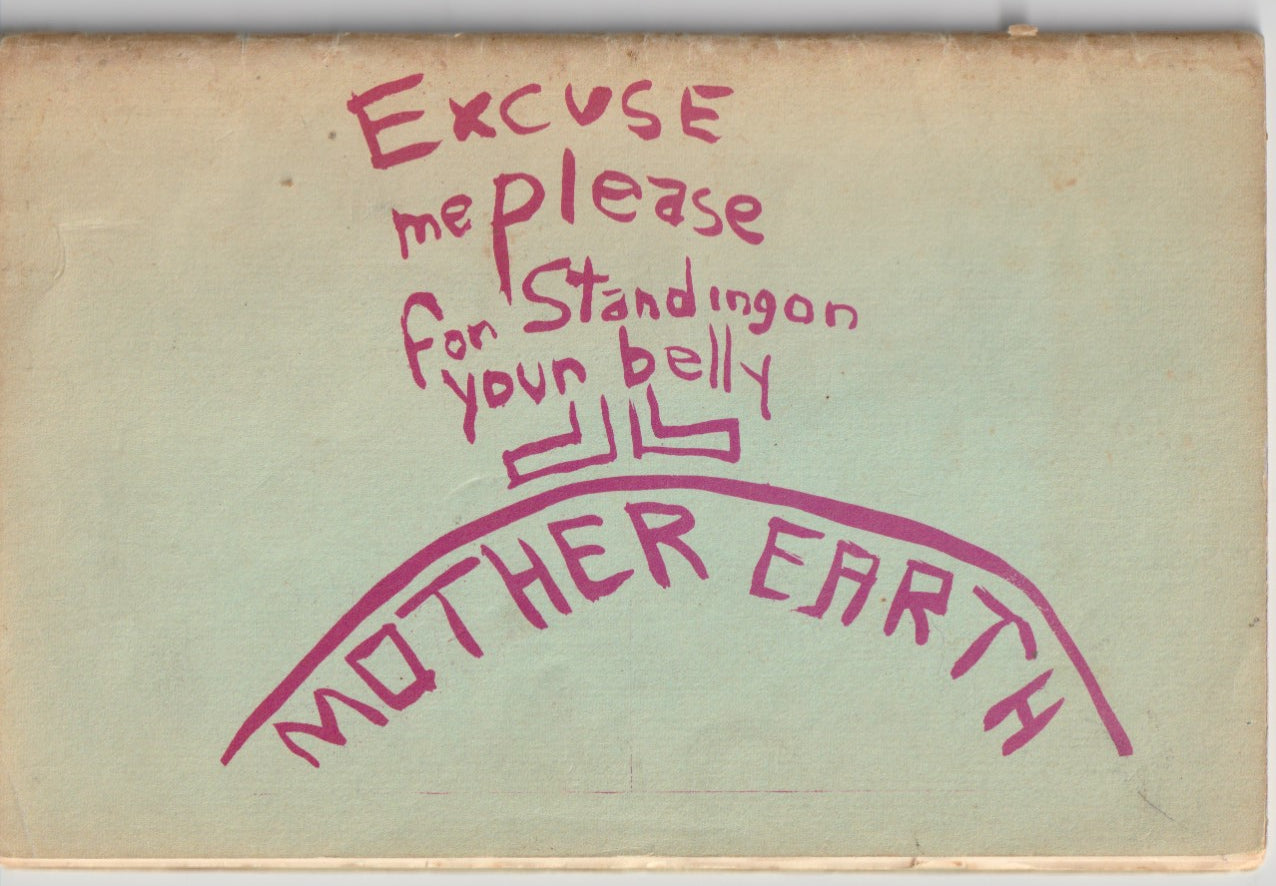 Excuse
me please
for Standing on
your belly
MOTHER EARTH